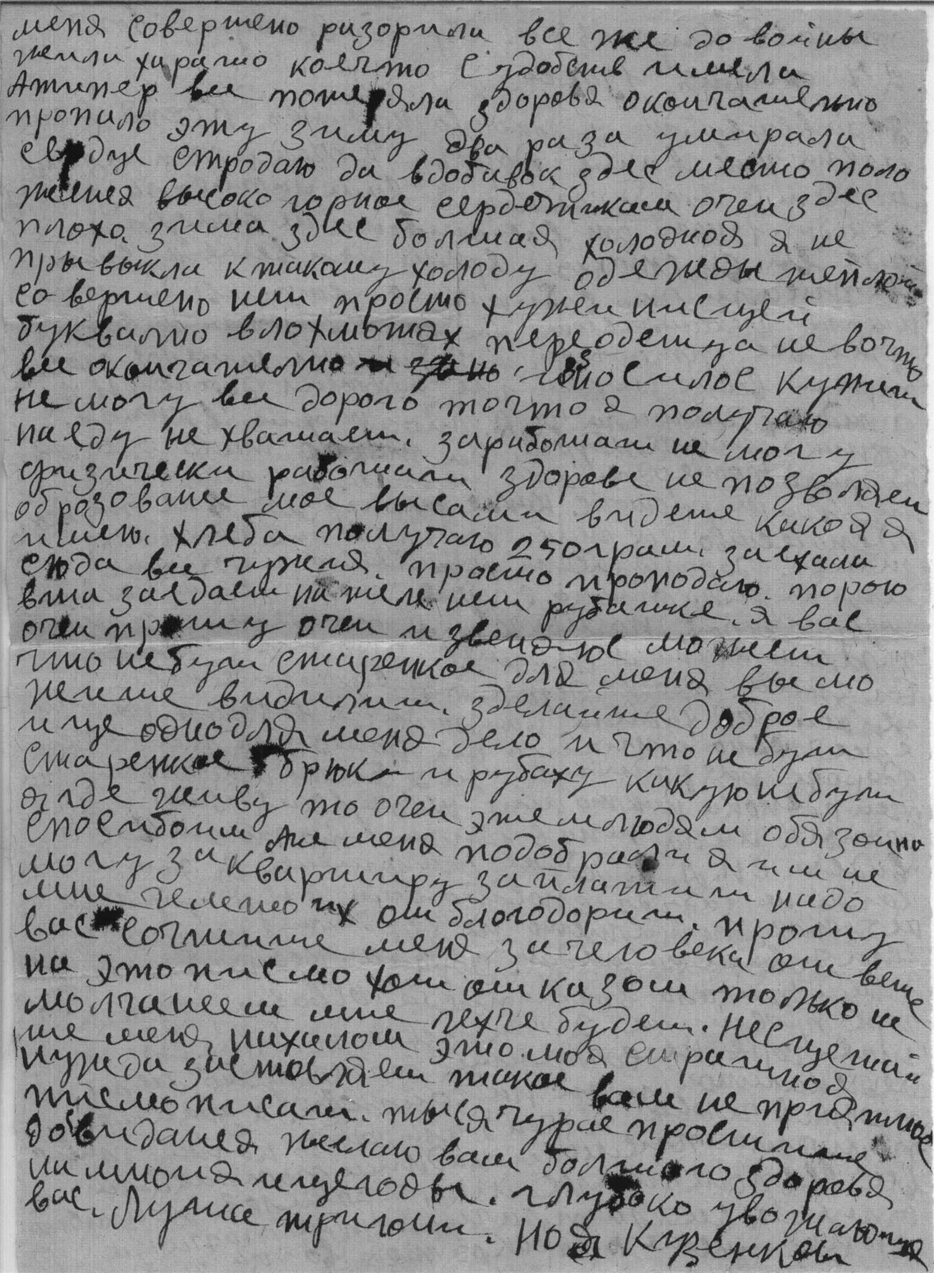 меня совершено разорили все же до войны
жили харашо коечто с удобств имели
Атипер все потеряла здоровя окончательно
пропало эту зиму два раза умирала
сердце стродаю да вдобавок здес место поло
жения высоко горное сердешникам очен здес
плохо зима здес болшая холодная я не
прывыкла к такому холоду одежды теплой
совершено нет просто хуже нисщей
буквално влохмотях переодется не вочто
все окончателно износилос купит
не могу все дорого точто я получаю
на еду не хватает. заработат не могу
физически работат здорове не позволяет
оброзование мое вы сами видете какоя я
имею. хлеба получаю 250 грам. заехала
сюда все чужия. просто проподаю. порою
вша заедает на теле нет рубашке. я вас
очен прошу очен извеняюс может
что небуди старенкое для меня вы мо
жите видилит. зделайте доброе
ище одно для меня дело и что небуди
старенкое брюки и рубаху какую небуди
я где живу то очен этем людям обязонна
спосибо им меня подобрали я им не
могу за квартиру заплатит надо
мне их отблогодорит. прошу
вас сочтите меня за человека ответе
на это писмо хот отказом толко не
молчанеем мне лехче будет. Не сщетай
те меня нахалом это моя страшная
нужда заставляет такое вам не приятное
писмо писат. тысячу рас простите
до видания желаю вам болшого здоровя
на многия ище годы. глубоко уважающия
вас.